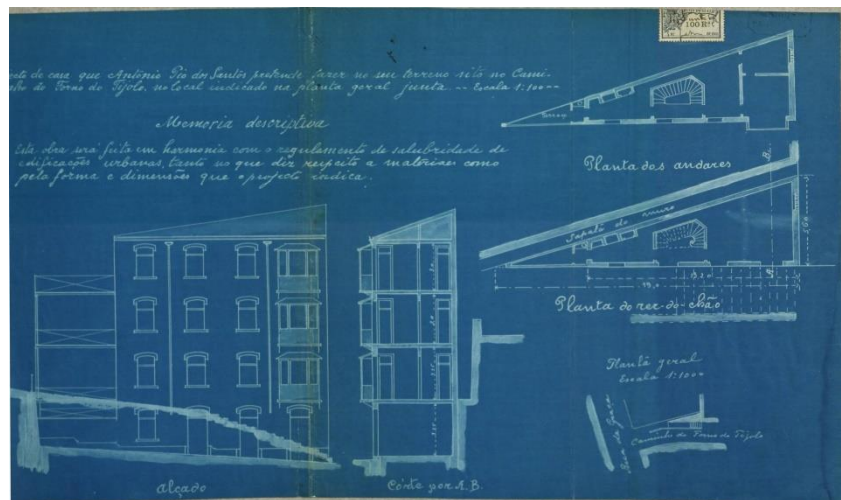 jecto de casa que António Pio dos Santos pretende fazer no seu terreno sito no Cami-
nho do Forno do Tijolo, no local indicado na planta geral junta. -- Escala 1:100 --
Memoria descriptiva
Esta obra será feita em harmonia com o regulamento de salubridade de
edificações urbanas, tanto no que diz respeito a materiaes como
pela forma e dimensões que o projecto indica.
100 REIS
Terraço
Planta dos andares
B.
Tapete do muro
Planta do rez-do-chão
Planta geral
Escala 1:1000
Rua da Graça
Caminho do Forno do Tijolo
Alçado
Córte por A.B.